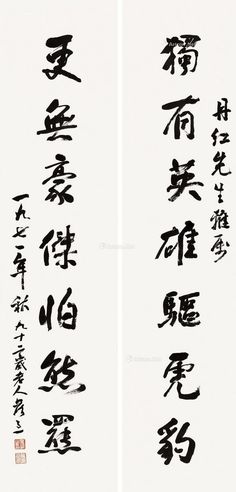 丹红先生雅属
獨有英雄驅虎豹
更無豪傑怕熊羆
一九七一年秋九十二歲老人